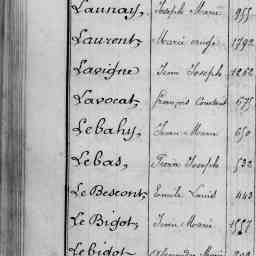 Launay, Joseph Marie 955
Laurent, Marie ange 1792
Lavigne Jean Joseph 1262
Lavocat, François Constant 675
Lebahy, Jean Marie 650
Lebas, Pierre Joseph 532
Le Bescont, Emile Louis 443
Le Bigot, Jean Marie 1557
Lebigot Alexandre Marie